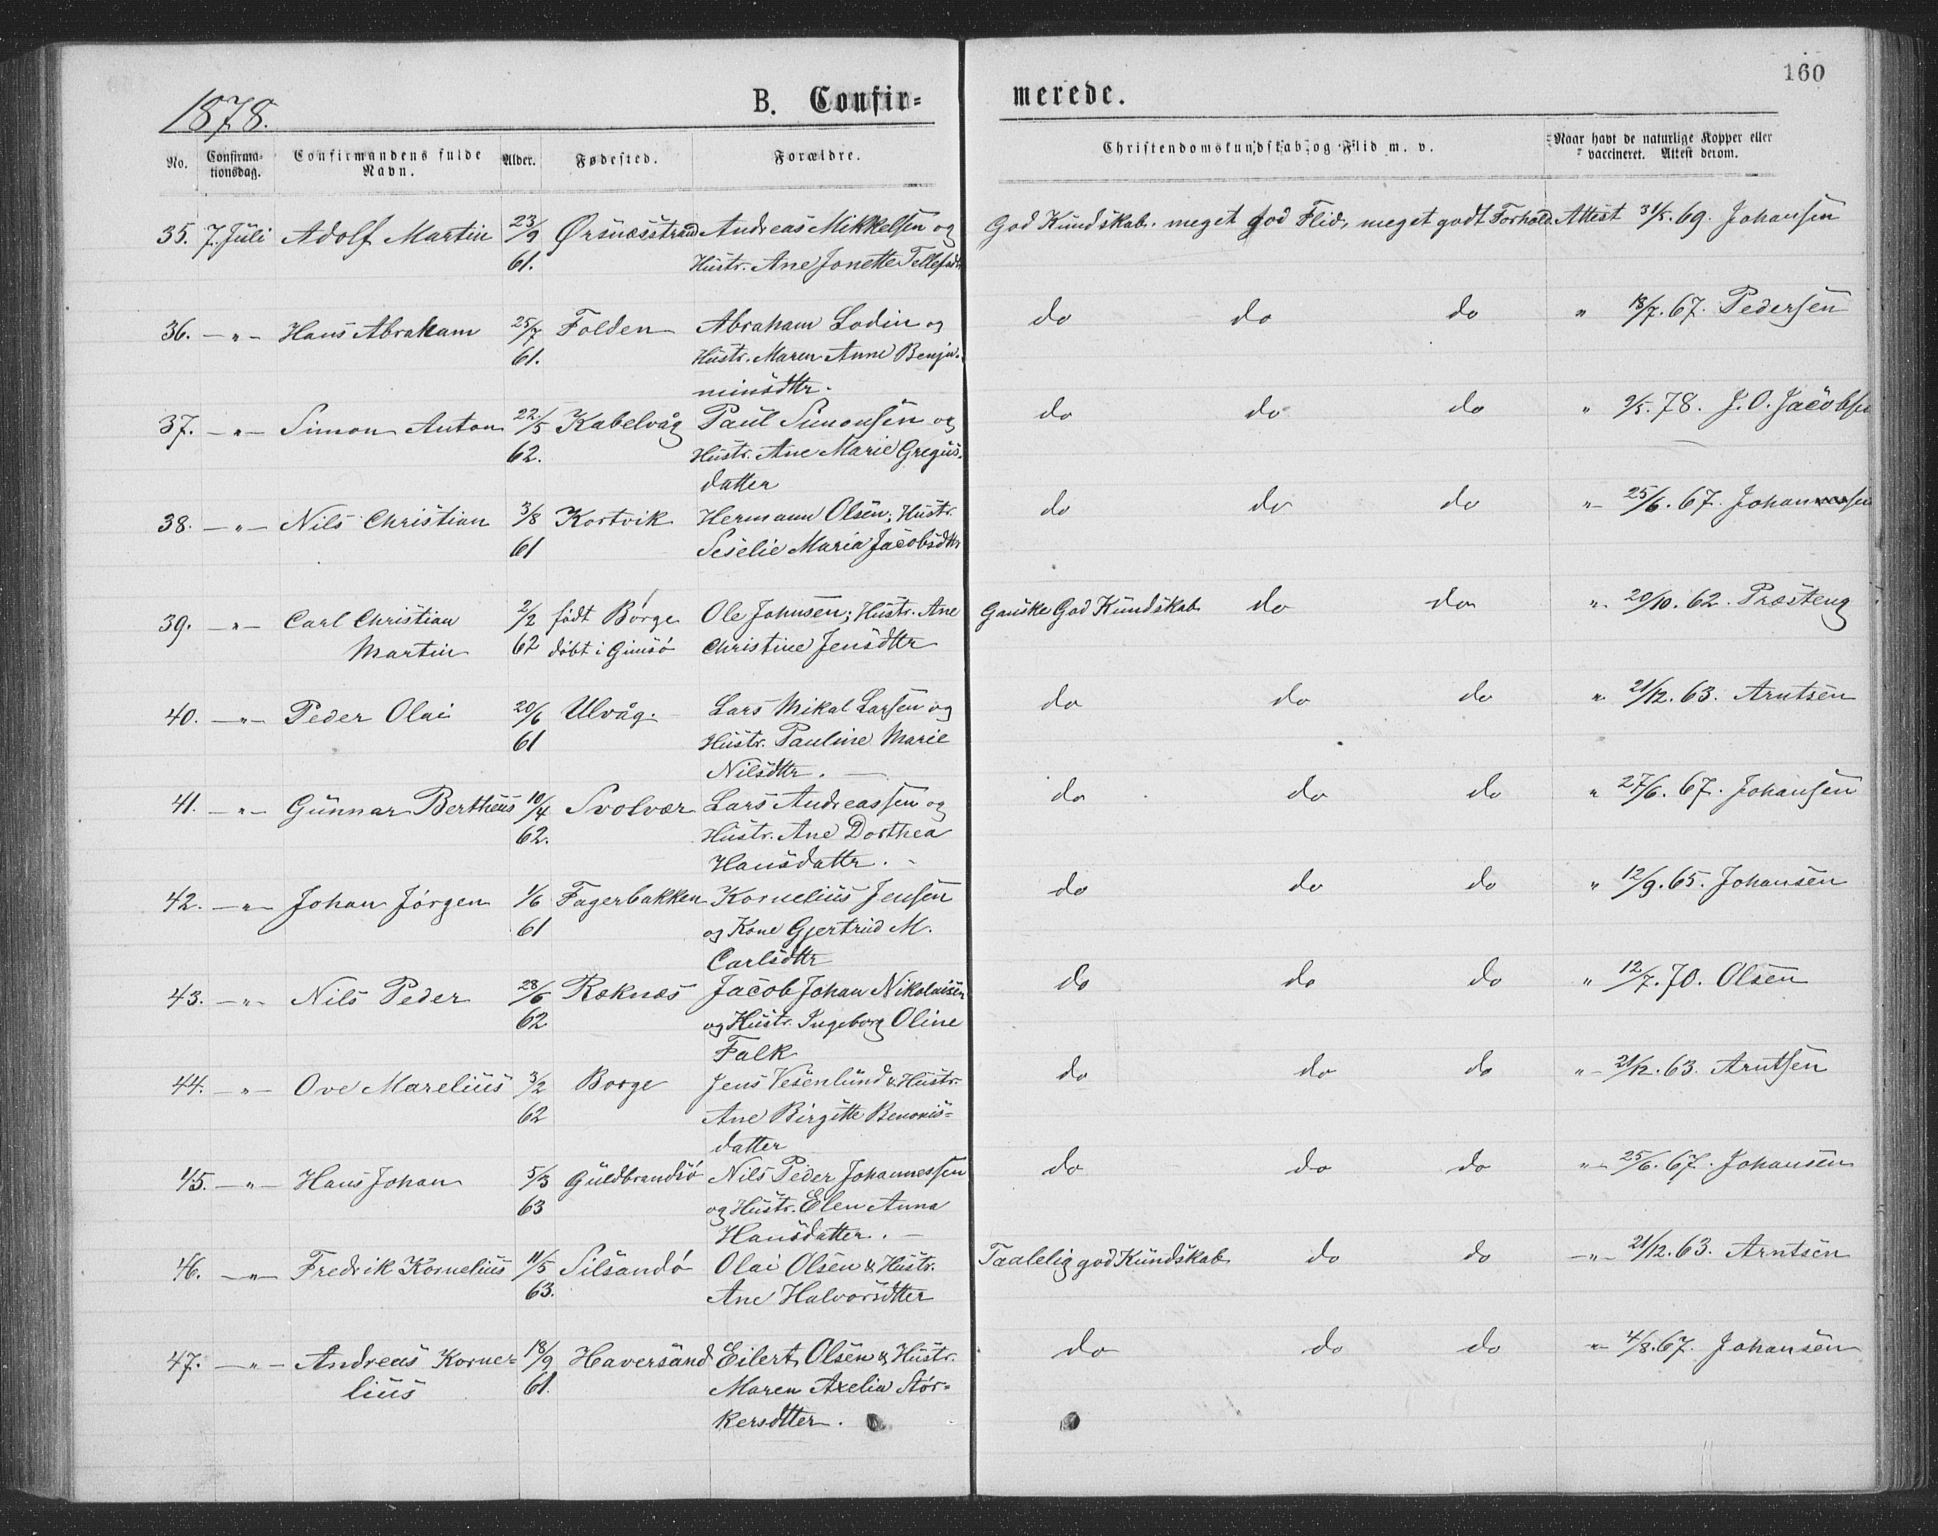 160
1878.
B. Confir-
merede.
No.
Confirma-
tionsdag.
Confirmandens fulde
Navn.
Alder.
Fødested.
Forældre.
Christendomskundskab og Flid m. v.
Naar havt de naturlige Kopper eller
vaccineret. Attest derom.
35. 7. Juli Adolf Martin 23/9 Ørsnæsstrand Andreas Mikkelsen og God Kundskab. meget god Flid, meget godt Forhold Attest 31/5. 69. Johansen
61. Hustr. Ane Jonette Tellefsdtr
36. — " — Hans Abraham 25/7 Folden Abraham Lodin og do do do " 18/7. 67. Pedersen
61. Hustr. Maren Anne Benja-
minsdttr.
37. — " — Simon Anton 22/5 Kabelvåg Paul Simonsen og do do do " 9/5. 78. J. O. Jacobsen
62. Hustr. Ane Marie Gregus-
datter
38. — " — Nils Christian 3/8 Kortvik Hermann Olsen; Hustr. do do do " 25/6. 67. Johansen
61 Seselie Maria Jacobsdttr
39. — " — Carl Christian 2/2 født Børge Ole Johnsen; Hustr. Ane Ganske God Kundskab do do " 20/10. 62. Præsteng
Martin 62 døbt i Gimsø Christine Jensdttr
40. — " — Peder Olai 20/6 Ulvåg. Lars Mikal Larsen og do do do " 21/12. 63. Arntsen
61 Hustr. Pauline Marie
Nilsdttr. —
41. — " — Gunnar Bertheus 10/4 Svolvær Lars Andreassen og do do do " 27/6. 67. Johansen
62. Hustr. Ane Dorthea
Hansdattr. -
42. — " — Johan Jørgen 1/6 Fagerbakken Kornelius Jensen do do do " 12/9. 65. Johansen
61 og Kone Gjertrud M.
Carlsdttr
43. — " — Nils Peder 28/6 Reknes Jacob Johan Nikolaisen do do do " 12/7. 70. Olsen
62 og Hustr. Ingeborg Oline
Falk
44. — " — Ove Marelius 3/2 Borge Jens Vesenlund & Hustr. do do do " 21/12. 63. Arntsen
62 Ane Birgitte Benonis-
datter
45. — " — Hans Johan 5/3 Guldbrandsø Nils Peder Johannessen do do do " 25/6. 67. Johansen
63 og Hustr. Elen Anna
Hansdatter. —
46. — " — Fredrik Kornelius 11/5 Silsandø Olai Olsen & Hustr. Taalelig god Kundskab do do — " — 21/12. 63. Arntsen
63. Ane Halvorsdtter
47. — " — Andreas Korne- 18/9 Haversand Eilert Olsen & Hustr. do do do " 4/8. 67. Johansen
lius 61. Maren Axelia Stør-
kersdtter.